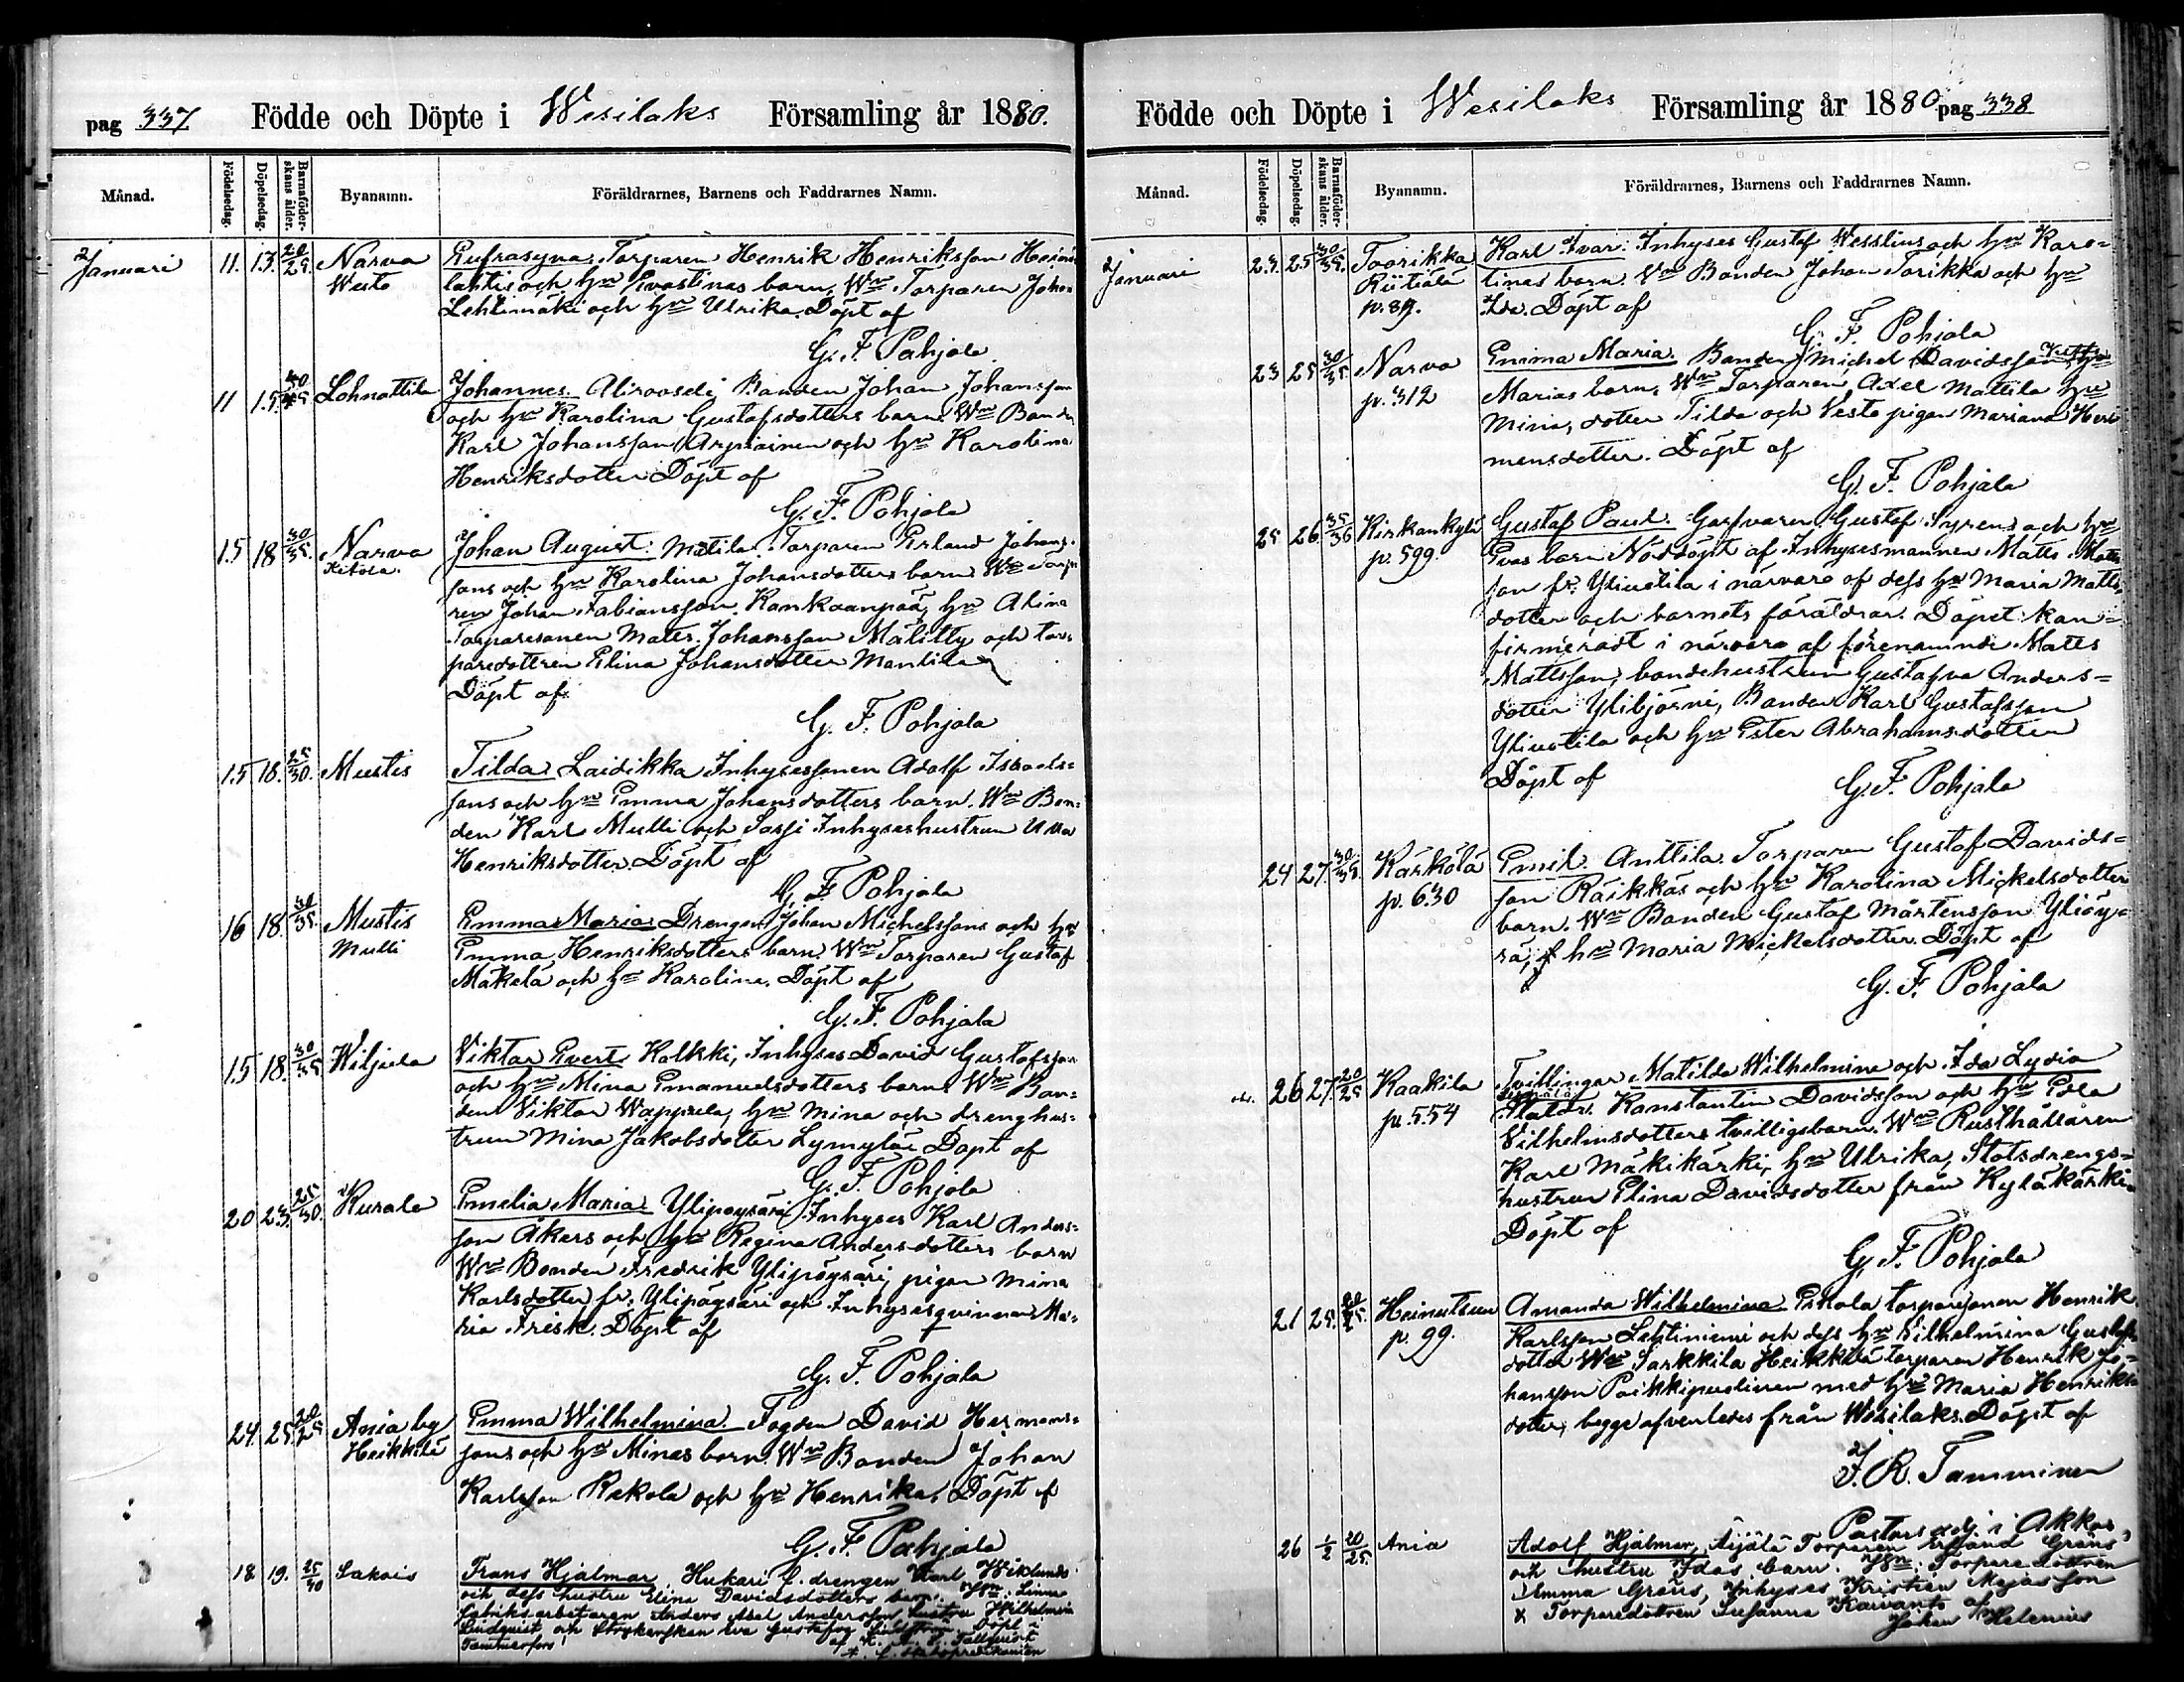 pag 337 Födde och Döpte i Wesilaks Församling år 1880.
Månad. Födelsedag. Döpelsedag. Barnaföderskans ålder. Byanamn. Föräldrarnes, Barnens och Faddrarnes Namn.
Januari 11. 13. 20/25. Narva Eufrasyna. Torparen Henrik Henriksson
Westo lahtis och hru Evastinas barn. Wn Torparen Johan
Lehtimäki och hru Ulrika. Döpt af
G. F. Pohjala
11 15. Lohnattila Johannes. Alirooseli Bonden Johan Johansson
och hru Karolina Gustafsdotters barn. Wn Bonden
Karl Johansson Arpiainen och hru Karolina
Henriksdotter Döpt af
G. F. Pohjala
15 18 30/35. Narva Johan August. Matila. Torparen Erland Johans-
Ketola. sons och hru Karolina Johansdotters barn. Wn Torpa-
ren Johan Fabiansson Kankaanpää, hru Alina
Torparesonen Matts Johansson Mälitty och tor-
paredottren Elina Johansdotter Mantila
Döpt af
G. F. Pohjala
15 18. 25/30. Mustis Tilda. Laidikka Inhysessonen Adolf Israels-
sons och hru Emma Johansdotters barn. Wn Bon-
den Karl Mulli och Sassi Inhyseshustrun Ulla
Henriksdotter. Döpt af
G. F. Pohjala
16 18. 30/35. Mustis Emma Maria. Drengen Johan Michelssons och hru
Mulli Emma Henriksdotters barn. Wn Torparen Gustaf
Mäkelä och hru Karolina. Döpt af
G. F. Pohjala
15 18. 30/35 Wiljiala Viktor Evert. Kolkki, Inhyses David Gustafsson
och hru Mina Emanuelsdotters barn. Wn Bon-
den Viktor Wappula, hru Mina och drenghus-
trun Mina Jakobsdotter Lymylä Döpt af
G. F. Pohjala
20 23. 25/30. Kurala Emelia Maria. Ylipoysäri Inhyses Karl Anders-
son Åkers och hru Regina Andersdotters barn
Wn Bonden Fredrik Ylipöysäri, pigan Mina
Karlsdotter fr. Ylipöysäri och Inhysesqvinnan Ma-
ria Frisk. Döpt af
G. F. Pohjala
24. 25. 20/25 Ania by Emma Wilhelmina. Fogden David Hermans-
Heikkilä sons och hru Minas barn. Wn Bonden Johan
Karlsson Rekola och hru Henrika. Döpt af
G. F. Pohjala
18 19. Sakois Frans Hjalmar. Hukari f. drengen Karl Wiklunds
och dess hustru Elina Davidsdotters barn. Wn.
fabriksarbetaren Anders Axel Andersson hustru Wilhelmina
Lindqvist och Strykerskan Eva Gustafva Lindström. Döpt i
Tammerfors af Tallqvist

Födde och Döpte i Wesilaks Församling år 1880 pag 338
Månad. Födelsedag. Döpelsedag. Barnaföderskans ålder. Byanamn. Föräldrarnes, Barnens och Faddrarnes Namn.
Januari 23. 25 30/35. Toorikka Karl Ivar. Inhyses Gustaf Wesslins och hru Karo-
Riitiälä linas barn. Wn Bonden Johan Torikka och hru
p. 89. Ida. Döpt af
G. F. Pohjala
23 25 30/35. Narva Emma Maria. Bonden Michel Davidsson
p. 312 Marias barn. Wn Torparen Axel Mattila hru
Mina, dotter Tilda och Vesto pigan Mariana Her-
mansdotter. Döpt af
G. F. Pohjala
25 26 35/36 Kirkonkylä Gustaf Paul. Garfvaren Gustaf Syrens och hru
p. 599. Evas barn Nöddöpt af Inhysesmannen Matts Matts-
son fr. Yliustila i närvaro af dess hru Maria Matts-
dotter och barnets föräldrar. Döpet kon-
firmeradt i närvaro af förenämnde Matts
Mattsson, bondehustrun Gustafva Anders-
dotter Ylibjörni, Bonden Karl Gustafsson
Yliustila och hru Ester Abrahamsdotter
Döpt af G. F. Pohjala
24 27. Kärkölä Emil. Anttila. Torparen Gustaf Davids-
p. 630 son Räikkäs och hru Karolina Mickelsdotter
barn. Wn Bonden Gustaf Mårtensson Yliöy-
rä, hru Maria Mickelsdotter. Döpt af
G. F. Pohjala
26 27. 20/25 Kaakila Tvillingar Matilda Wilhelmina och Ida Lydia
p. 554 Konstantin Davidsson och hru Eda
Vilhelmsdotters tvillingsbarn. Wn Rusthållaren
Karl Mäkikärki, hru Ulrika, Statsdrengs-
hustrun Elina Davidsdotter från Kyläkärki.
Döpt af
G. F. Pohjala
21 25. Heinutsuu Amanda Wilhelmina Eskola torparesonen Henrik
p. 99. Karlsson Lehtiniemi och dess hru Vilhelmina Gustafs-
dotter Wn Sarkkila Heikkilä torparen Henrik Jo-
hansson Paikkipuolinen med hru Maria Henriks-
dotter, begge afventedes från Wesilaks. Döpt af
F. R. Tamminen
Pastors adj. i Akkas,
26 1/2 20/25. Ania Adolf Hjalmar, Äijälä Torparen Erland Gröns
och hustru Idas barn. Wn. Torpare dottren
Emma Gröns, Inhyses Kristian Majasson
x Torparedottren Susanna Kaivanto af
Johan Helenius